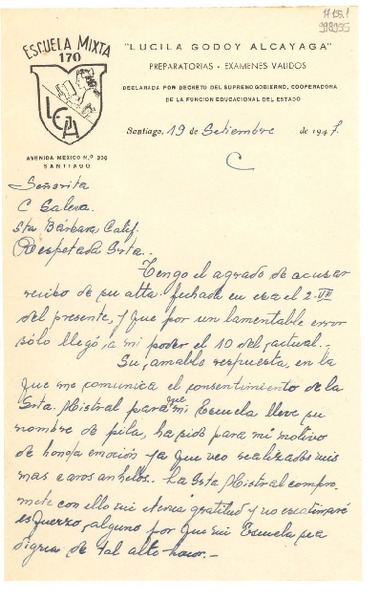 H 156.1
998995
ESCUELA MIXTA
170
LGA
AVENIDA MEXICO N.º
SANTIAGO
"LUCILA GODOY ALCAYAGA"
PREPARATORIAS - EXAMENES VALIDOS
DECLARADA POR DECRETO DEL SUPREMO GOBIERNO, COOPERADORA
DE LA FUNCION EDUCACIONAL DEL ESTADO
Santiago, 19 de Setiembre de 1947.
C
Señorita
C Saleva.
Sta Bárbara Calif.
Respetada Srta.
Tengo el agrado de acusar
recibo de su atta. fechada en esa el 2-VII
del presente, y que por un lamentable error
sólo llegó a mi poder el 10 del actual.-
Su amable respuesta, en la
que me comunica el consentimiento de la
Srta. Mistral para que mi Escuela lleve su
nombre de pila, ha sido para mi motivo
de honda emoción ya que veo realizados mis
mas caros anhelos. La Srta Mistral compro
mete con ello mi eterna gratitud y no escatimaré
esfuerzo alguno por que mi Escuela sea
digna de tal alto honor.-